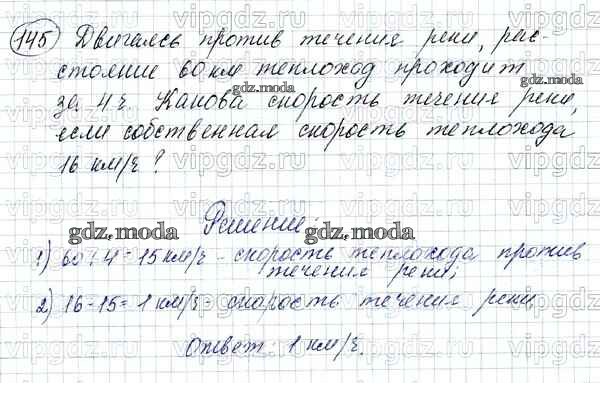 145 Двигаясь против течения реки, рас-
стояние 60 км теплоход проходит
за 4 ч. Какова скорость течения реки,
если собственная скорость теплохода
16 км/ч?
Решение:
1) 60 : 4 = 15 км/ч - скорость теплохода против
течения реки;
2) 16-15= 1 км/ч - скорость течения реки
Ответ: 1 км/ч.
gdz.moda
gdz.moda
gdz.moda
gdz.moda
vipgdz.ru